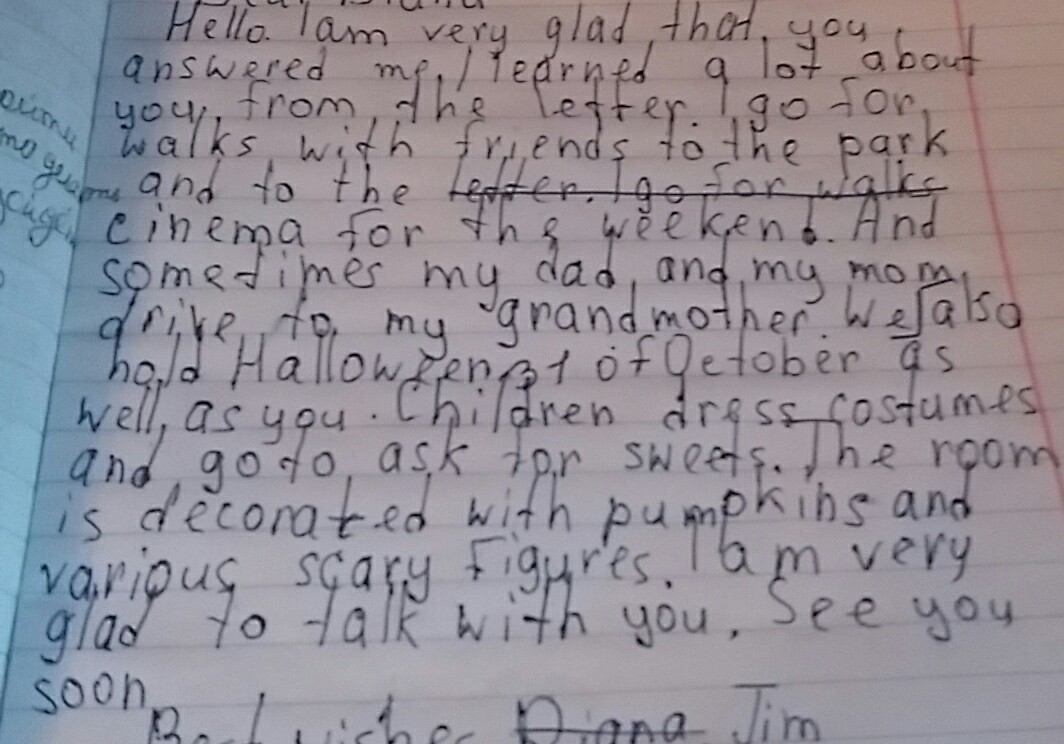 Hello. I am very glad that you
answered me, I learned a lot about
you, from the letter. I go for
walks with friends to the park
and to the letter. I go for walks
cinema for the weekend. And
sometimes my dad, and my mom
drive to my grandmother. We also
hold Halloween 31 of October as
well, as you. Children dress costumes
and go to ask for sweets. The room
is decorated with pumpkins and
various scary figures. I am very
glad to talk with you. See you
soon
Best wishes Diana Jim